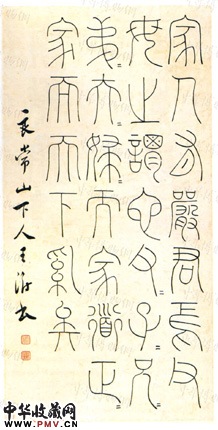 家人有嚴君焉父
母之謂也父=子=兄=
弟=夫=婦=而家道正=
家而天下定矣
良常山下人王澍書
中华收藏网
WWW.PMV.CN